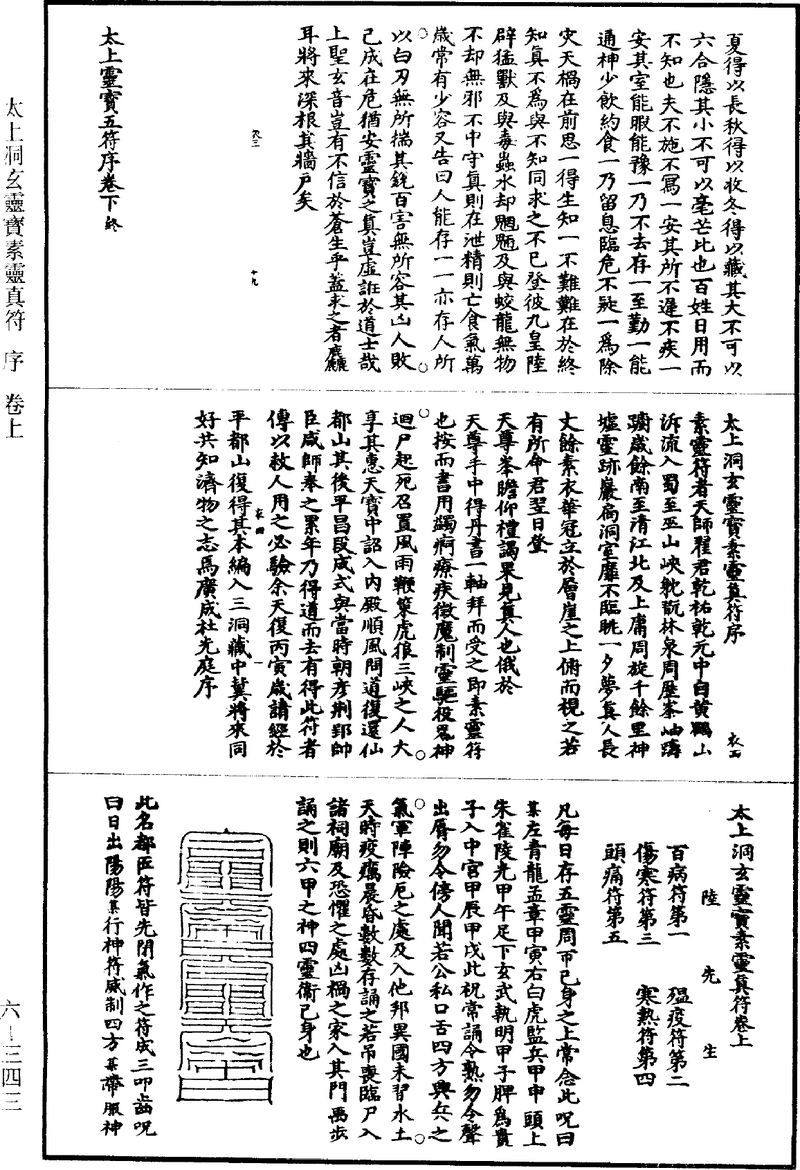 夏得以長秋得以收冬得以藏其大不可以
六合隱其小不可以毫芒比也百姓日用而
不知也夫不施不寫一安其所不遑不疾一
安其室能暇能豫一乃不去存一至勤一能
通神少飲約食一乃留息臨危不疑一為除
災天禍在前思一得生知一不難難在於終
知真不為與不知同求之不已登彼九皇陸
辟猛獸及與毒蟲水却魍魎及與蛟龍無物
不却無邪不中守真則在泄精則亡食氣萬
歲常有少容又告曰人能存一一亦存人所
以白刃無所揣其銳百害無所容其凶人敗
己成在危猶安靈寶之真豈虛誑於道士哉
上聖玄音豈有不信於蒼生乎蓋求之者麤
耳將來深根其牆戶矣
衣三
十九
太上靈寶五符序卷下終
太上洞玄靈寶素靈真符序
衣四
素靈符者天師翟君乾祐乾元中自黃鶴山
泝流入蜀至巫山峽躭翫林泉周歷峯岫躊
躕歲餘南至清江北及上庸周旋千餘里神
墟靈跡巖扃洞室靡不臨眺一夕夢真人長
丈餘素衣華冠立於層崖之上俯而視之若
有所命君翌日登
天尊峯瞻仰禮謁果見真人也俄於
天尊手中得丹書一軸拜而受之即素靈符
也按而書用蠲痾療疾徵魔制靈驅役鬼神
迴尸起死召置風雨鞭策虎狼三峽之人大
享其惠天寶中詔入內殿順風問道復還仙
都山其後平昌段成式與當時朝彥荆郢帥
臣咸師奉之累年乃得道而去有得此符者
傳以救人用之必驗余天復丙寅歲請經於
衣四
一
平都山復得其本編入三洞藏中冀將來同
好共知濟物之志焉廣成杜光庭序
太上洞玄靈寶素靈真符卷上
陸先生
百病符第一 瘟疫符第二
傷寒符第三 寒熱符第四
頭痛符第五
凡每日存五靈周帀己身之上常念此呪曰
某左青龍孟章甲寅右白虎監兵甲申頭上
朱雀陵光甲午足下玄武執明甲子脾為貴
子入中宮甲辰甲戌此祝常誦令熟勿令聲
出脣勿令傍人聞若公私口舌四方興兵之
氣軍陣險厄之處及入他邦異國未習水土
天時疫癘晨昏數數存誦之若吊喪臨尸入
諸祠廟及恐懼之處凶禍之家入其門禹步
誦之則六甲之神四靈衞己身也
此名都匠符皆先閉氣作之符成三叩齒呪
曰日出陽陽某行神符威制四方某帶服神
太上洞玄靈寶素靈真符 序 卷上
六—三四三